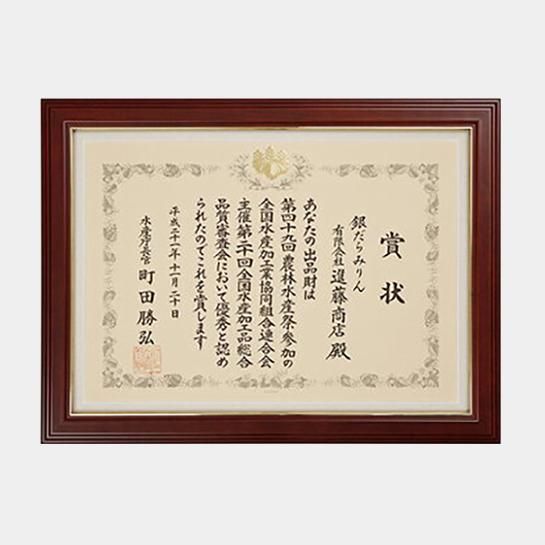 賞状
銀だらみりん
有限会社進藤商店殿
あなたの出品財は
第四十九回農林水産祭参加の
全国水産加工業協同組合連合会
主催第二十一回全国水産加工品総合
品質審査会において優秀と認め
られたのでこれを賞します
平成二十二年十一月二十日
水産庁長官 町田勝弘